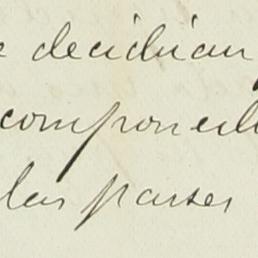 e decidian
componerlo
las partes